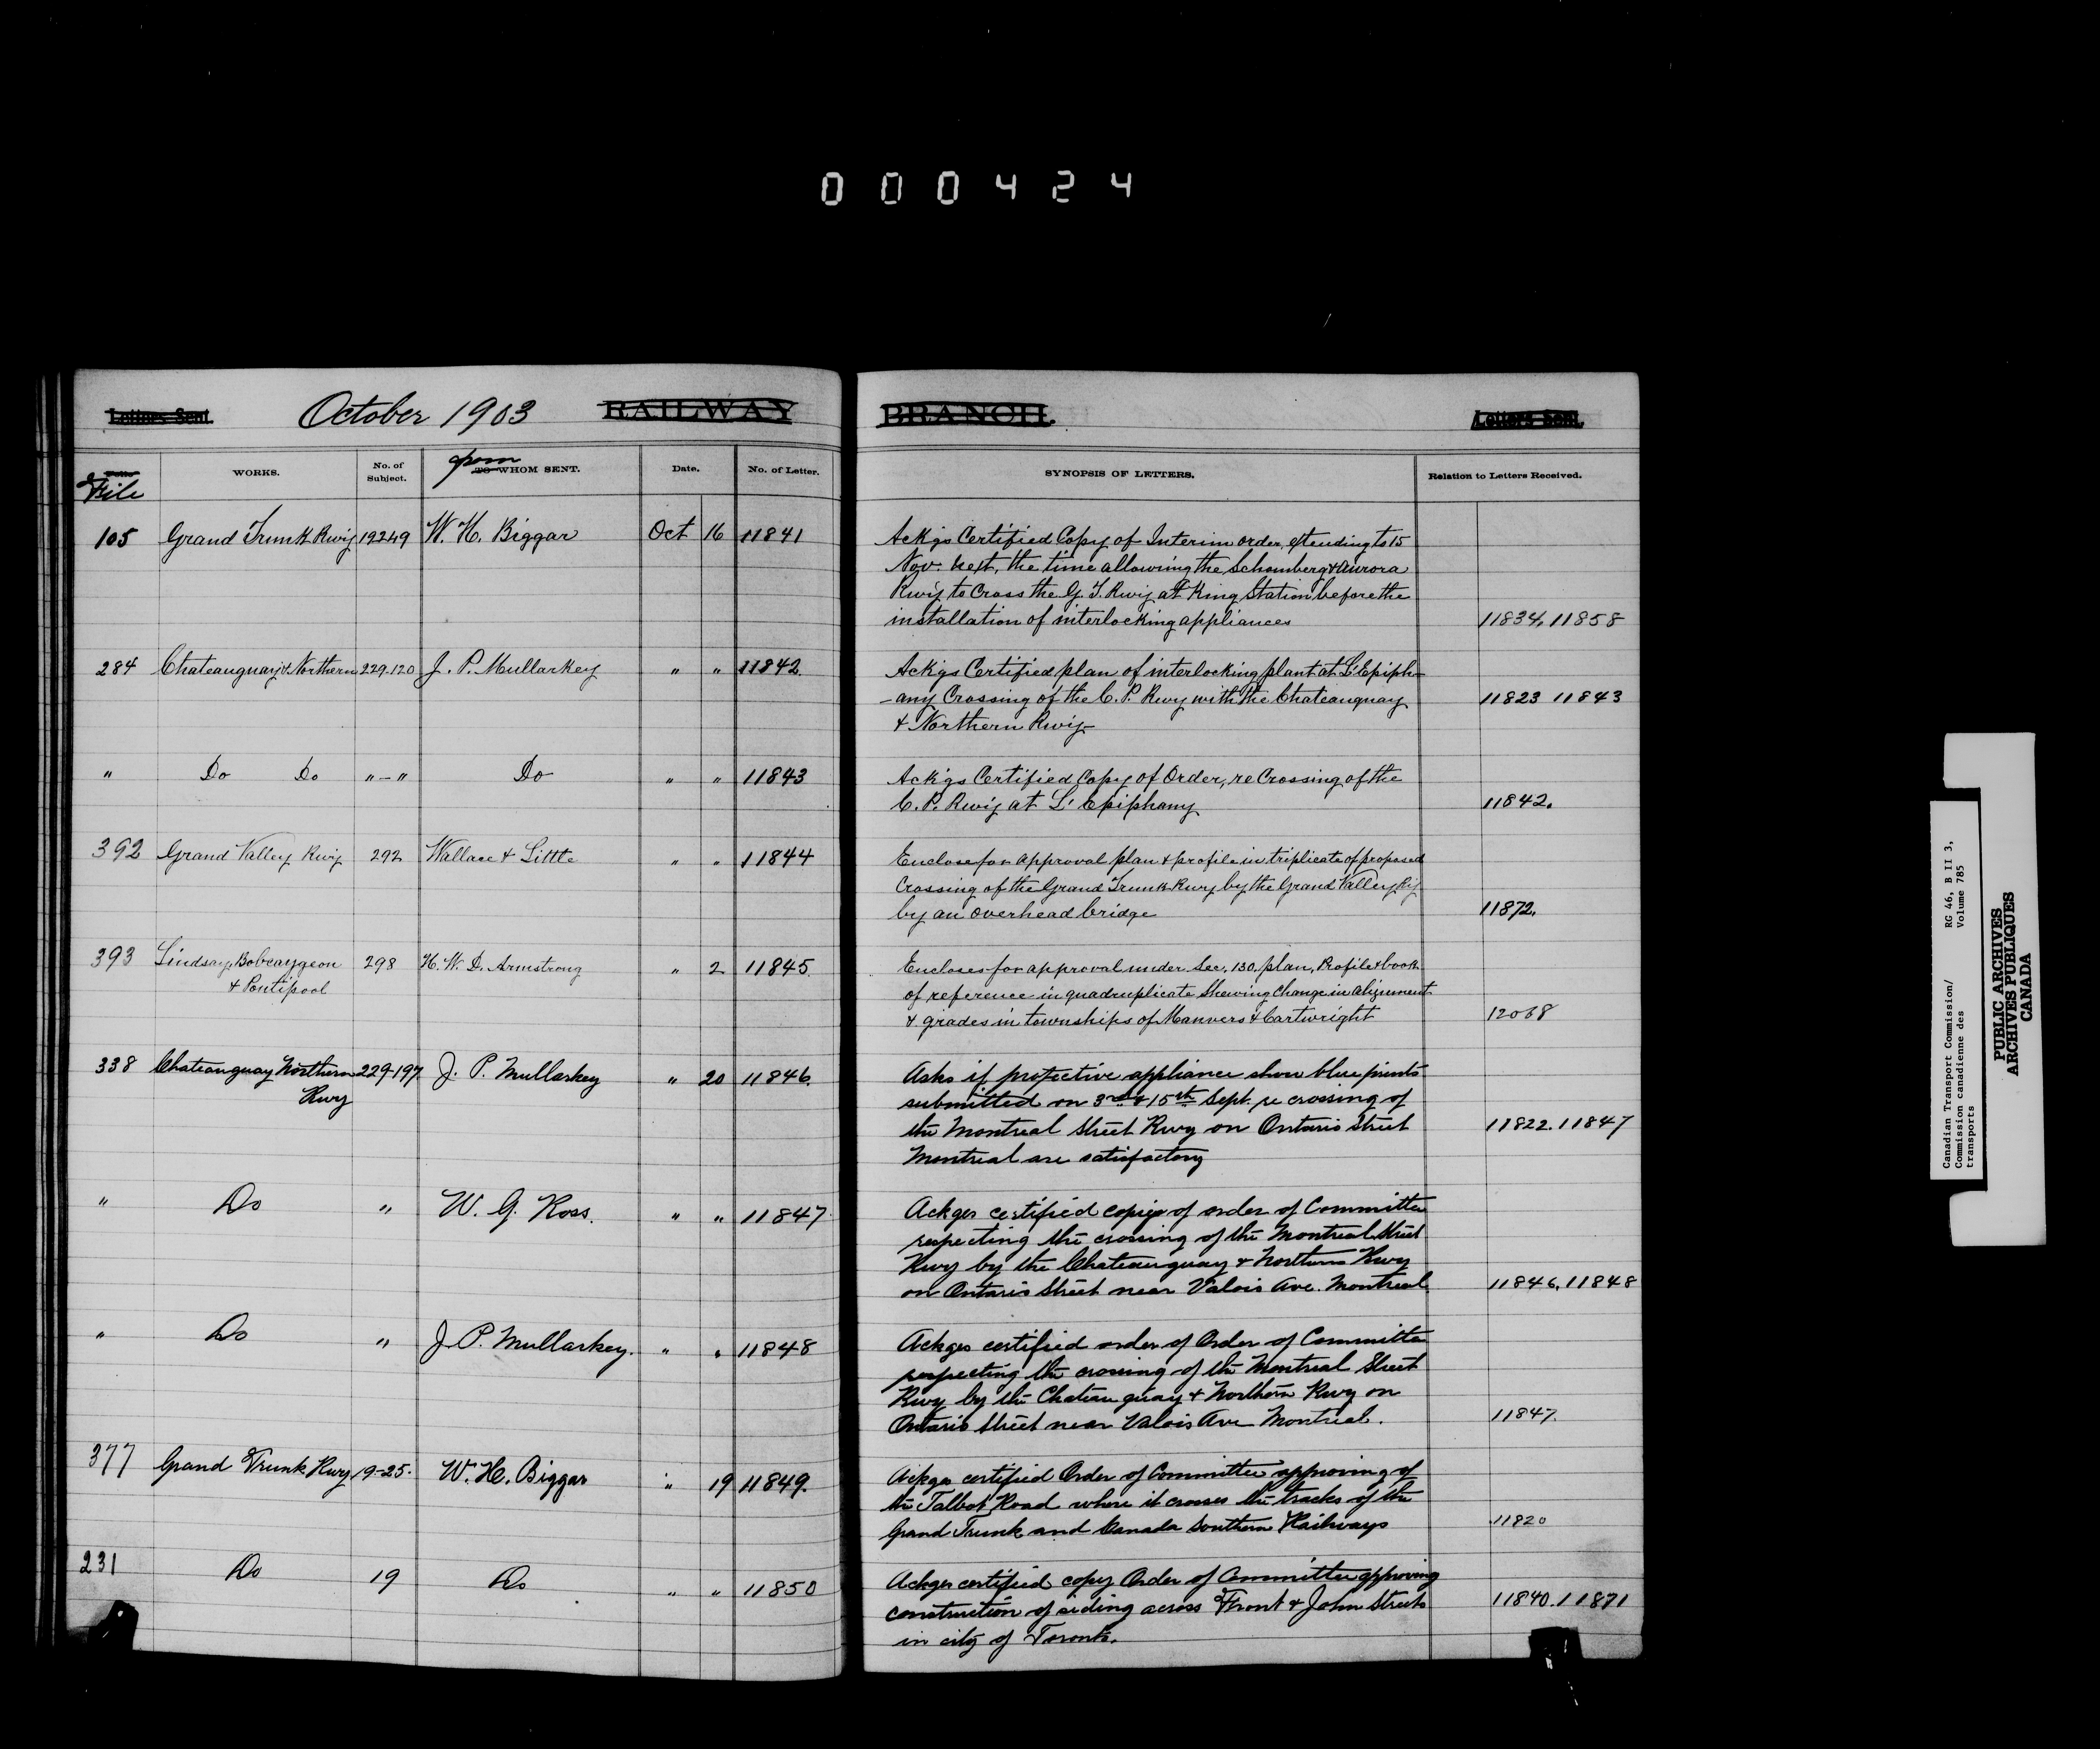 000424
Letters Sent.
October 1903
RAILWAY
BRANCH.
Letters Sent.
File
WORKS.
No. of Subject.
from
TO WHOM SENT.
Date.
No. of Letter.
SYNOPSIS OF LETTERS.
Relation to Letters Received.
105 Grand Trunk Rwy 19249 W. H. Biggar Oct 16 11841
Ackgs Certified Copy of Interim order, extending to 15
Nov. next, the time allowing the Schomberg & Aurora
Rwy to Cross the G. T. Rwy at King Station before the
installation of interlocking appliances 11834, 11858
284 Chateauguay & Northern 229-120 J. P. Mullarkey " " 11842.
Ackgs Certified plan of interlocking plant at L'Epiph-
-any Crossing of the C. P. Rwy with the Chateauguay 11823 11843
& Northern Rwy
" Do Do "-" Do " " 11843
Ackgs Certified Copy of Order, re Crossing of the
C. P. Rwy at L'Epiphany 11842.
392 Grand Valley Rwy 292 Wallace & Little " " 11844
Enclose for approval plan & profile in triplicate of proposed
Crossing of the Grand Trunk Rwy by the Grand Valley Ry
by an overhead bridge 11872.
393 Lindsay, Bobcaygeon 298 H. W. D. Armstrong " 2 11845.
& Pontipool
Encloses for approval under Sec. 130. plan, Profile & book
of reference in quadruplicate Shewing Change in alignment
& grades in townships of Manvers & Cartwright 12068
338 Chateauguay Northern 229-197 J. P. Mullarkey " 20 11846.
Rwy
Asks if protective appliance shown blue prints
submitted on 3rd & 15th Sept. re crossing of
the Montreal Street Rwy on Ontario Street 11822. 11847
Montreal are satisfactory
" Do " W. G. Ross. " " 11847.
Ackges certified copies of order of Committee
respecting the crossing of the Montreal Street
Rwy by the Chateauguay & Northern Rwy
on Ontario Street near Valois Ave. Montreal. 11846, 11848
" Do " J. P. Mullarkey. " " 11848
Ackges certified order of Order of Committee
respecting the crossing of the Montreal Street
Rwy by the Chateauguay & Northern Rwy on
Ontario Street near Valois Ave Montreal. 11847.
377 Grand Trunk Rwy 19-25. W. H. Biggar " 19 11849.
Ackges certified Order of Committee approving of
the Talbot Road where it crosses the tracks of the
Grand Trunk and Canada Southern Railways 11820
231 Do 19 Do " " 11850
Ackges certified copy Order of Committee approving
construction of siding across Front & John Streets 11840. 11871
in city of Toronto.
Canadian Transport Commission/
Commission canadienne des
transports
RG 46, B II 3,
Volume 785
PUBLIC ARCHIVES
ARCHIVES PUBLIQUES
CANADA